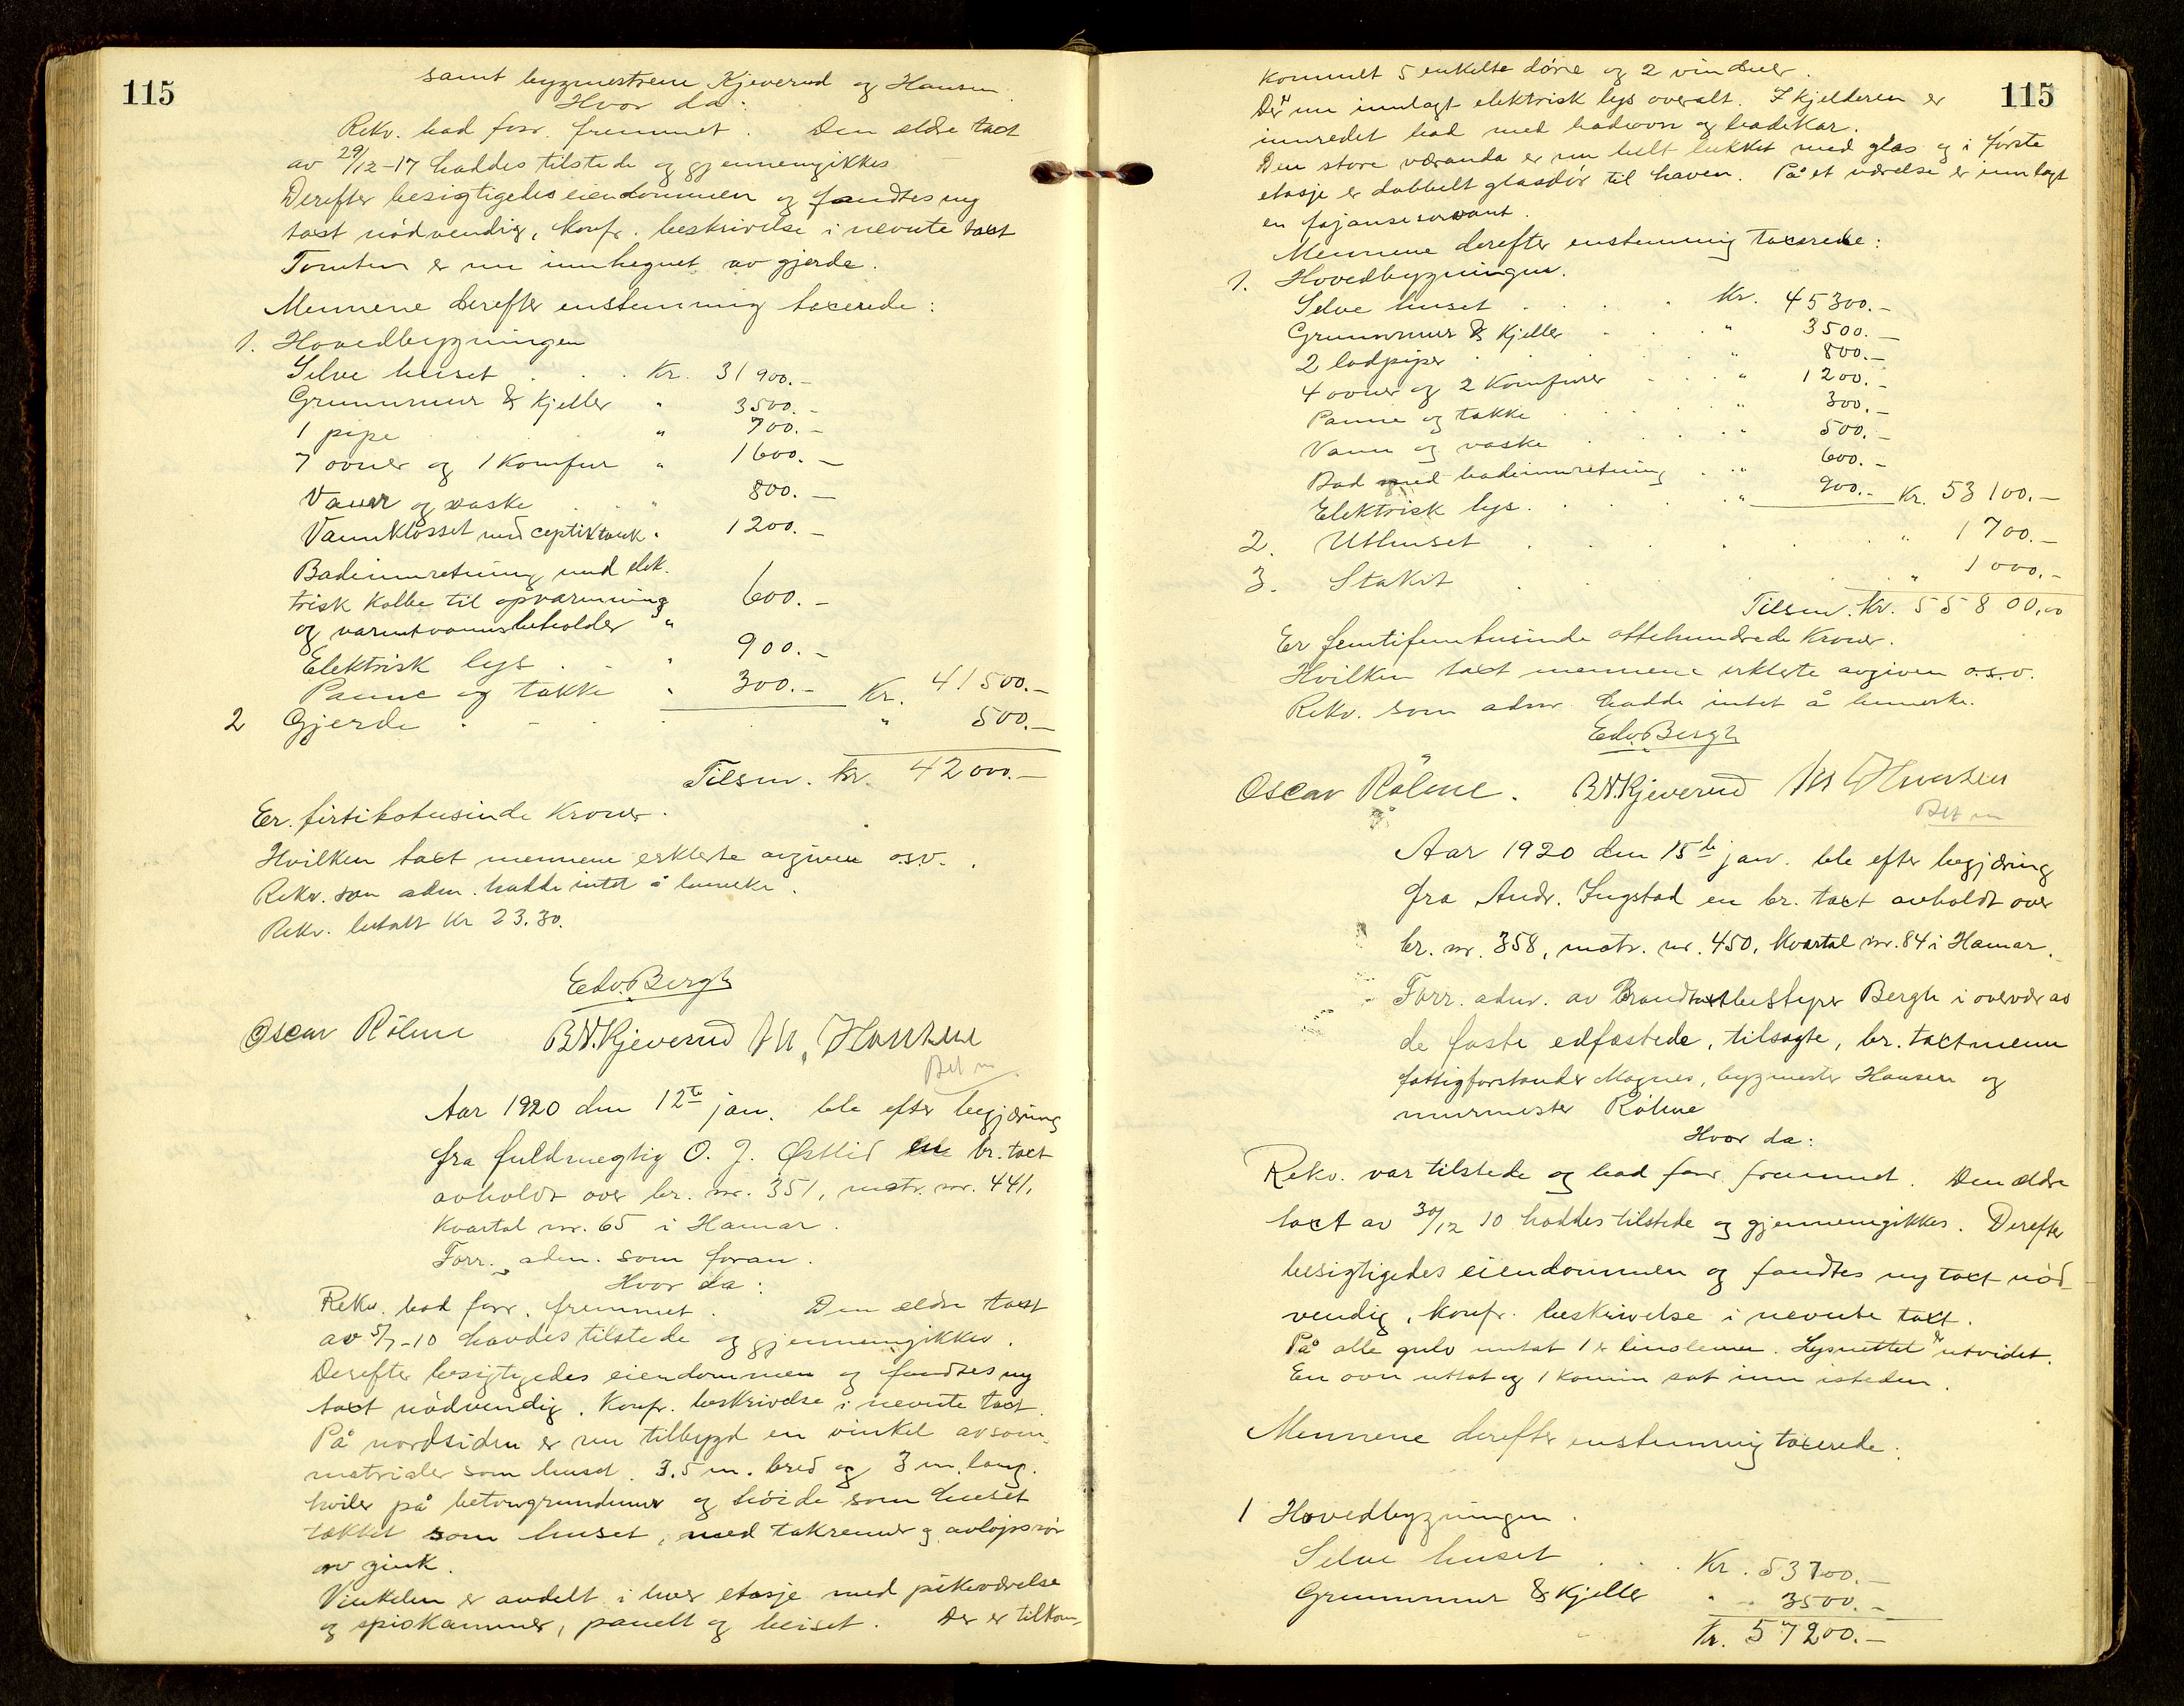 115
samt bygmestrene Kjeverud og Hansen.
Hvor da:
Rekv. bad forr. fremmet. Den eldre taxt
av 29/12-17 haddes tilstede og gjennemgikkes
Derefter besigtigedes eiendommen og fandtes ny
taxt nødvendig, konfr. beskrivelse i nevnte taxt
Tomten er nu innhegnet av gjerde.
Mennene derefter enstemmig taxerede:
1. Hovedbygningen
Selve huset . . . Kr. 31900.-
Grunnmur & Kjeller " 3500.-
1 pipe " 700.-
7 ovner og 1 Komfur " 1600.-
Vann og vaske " 800.-
Vannklosset med ceptiktank " 1200.-
Badeinnretning med elek-
trisk Kolbe til opvarmning
og varmtvannsbeholder " 600.-
Elektrisk lys . . " 900.-
Panne og takke " 300.- Kr. 41500.-
2 Gjerde . - . . " 500.-
Tilsm. Kr. 42000.-
Er firtitotusinde Kroner.
Hvilken taxt mennene erklerte avgiven o.s.v.
Rekv. som adm. hadde intet å bemerke.
Rekv. betalt Kr 23.30.
Edv. Bergh
Oscar Rølme B.N. Kjeverud M. Hansen
Bet m
Aar 1920 den 12te jan. ble efter begjæring
fra fuldmegtig O. J. Østlid en br. taxt
avholdt over br. nr. 351, matr. nr. 441,
Kvartal nr. 65 i Hamar.
Forr. adm. som foran.
Hvor da:
Rekv. bad forr. fremmet. Den eldre taxt
av 5/7-10 havdes tilstede og gjennemgikkes.
Derefter besigtigedes eiendommen og fandtes ny
taxt nødvendig. Konfr. beskrivelse i nevnte taxt.
På nordsiden er nu tilbygd en vinkel av sam-
matrialer som huset. 3.5 m. bred og 3 m. lang.
hviler på betongrundmur og høide som huset
tækket som huset, med takrenner og avløpsrør
av zink.
Vinkelen er avdelt i hver etasje med pikeværelse
og spiskammer, panelt og beiset. Der er tilkom-
115
kommet 5 enkelte døre og 2 vinduer.
Der er nu innlagt elektrisk lys overalt. I kjelderen er
innredet bad med badeovn og badekar.
Den store veranda er nu helt lukket med glas og i første
etasje er dobbelt glasdør til haven. På et værelse er innlagt
en fajanseservant.
Mennene derefter enstemmig taxerede:
1. Hovedbygningen.
Selve huset . . . . Kr. 45300.-
Grunnmur & Kjeller . . " 3500.-
2 ladpiper . . . . " 800.-
4 ovner og 2 Komfurer . . " 1200.-
Panne og takke . . . " 300.-
Vann og vaske . . . . " 500.-
Bad med badeinnretning . . " 600.-
Elektrisk lys . . . . " 900.- Kr. 53100.-
2. Uthuset . . . . . " 1700.-
3. Stakit . . . . " 1000.-
Tilsm. Kr. 55800,00
Er femtifemtusinde ottehundrede Kroner.
Hvilken taxt mennene erklerte avgiven o.s.v.
Rekv. som adm. hadde intet å bemerke.
Edv. Bergh
Oscar Rølme. B.N. Kjeverud M Hansen
Bet m
Aar 1920 den 15de jan. ble efter begjæring
fra Andr. Ingstad en br. taxt avholdt over
br. nr. 358, matr. nr. 450, Kvartal nr. 84 i Hamar.
Forr. adm. av Brandtaxtbestyrer Bergh i overvær av
de faste edfæstede, tilsagte, br. taxtmenn
fattigforstander Magnes, bygmester Hansen og
murmester Rølme
Hvor da:
Rekv. var tilstede og bad forr. fremmet. Den eldre
taxt av 30/12 10 haddes tilstede og gjennemgikkes. Derefter
besigtigedes eiendommen og fandtes ny taxt nød-
vendig, konfr. beskrivelse i nevnte taxt.
På alle gulv untat 1 er linoleum. Lysnettet er utvidet.
En ovn uttat og 1 Kamin sat inn isteden.
Mennene derefter enstemmig taxerede:
1 Hovedbygningen.
Selve huset . . . Kr. 53700.-
Grunnmur & Kjeller " 3500.-
Kr. 57200.-